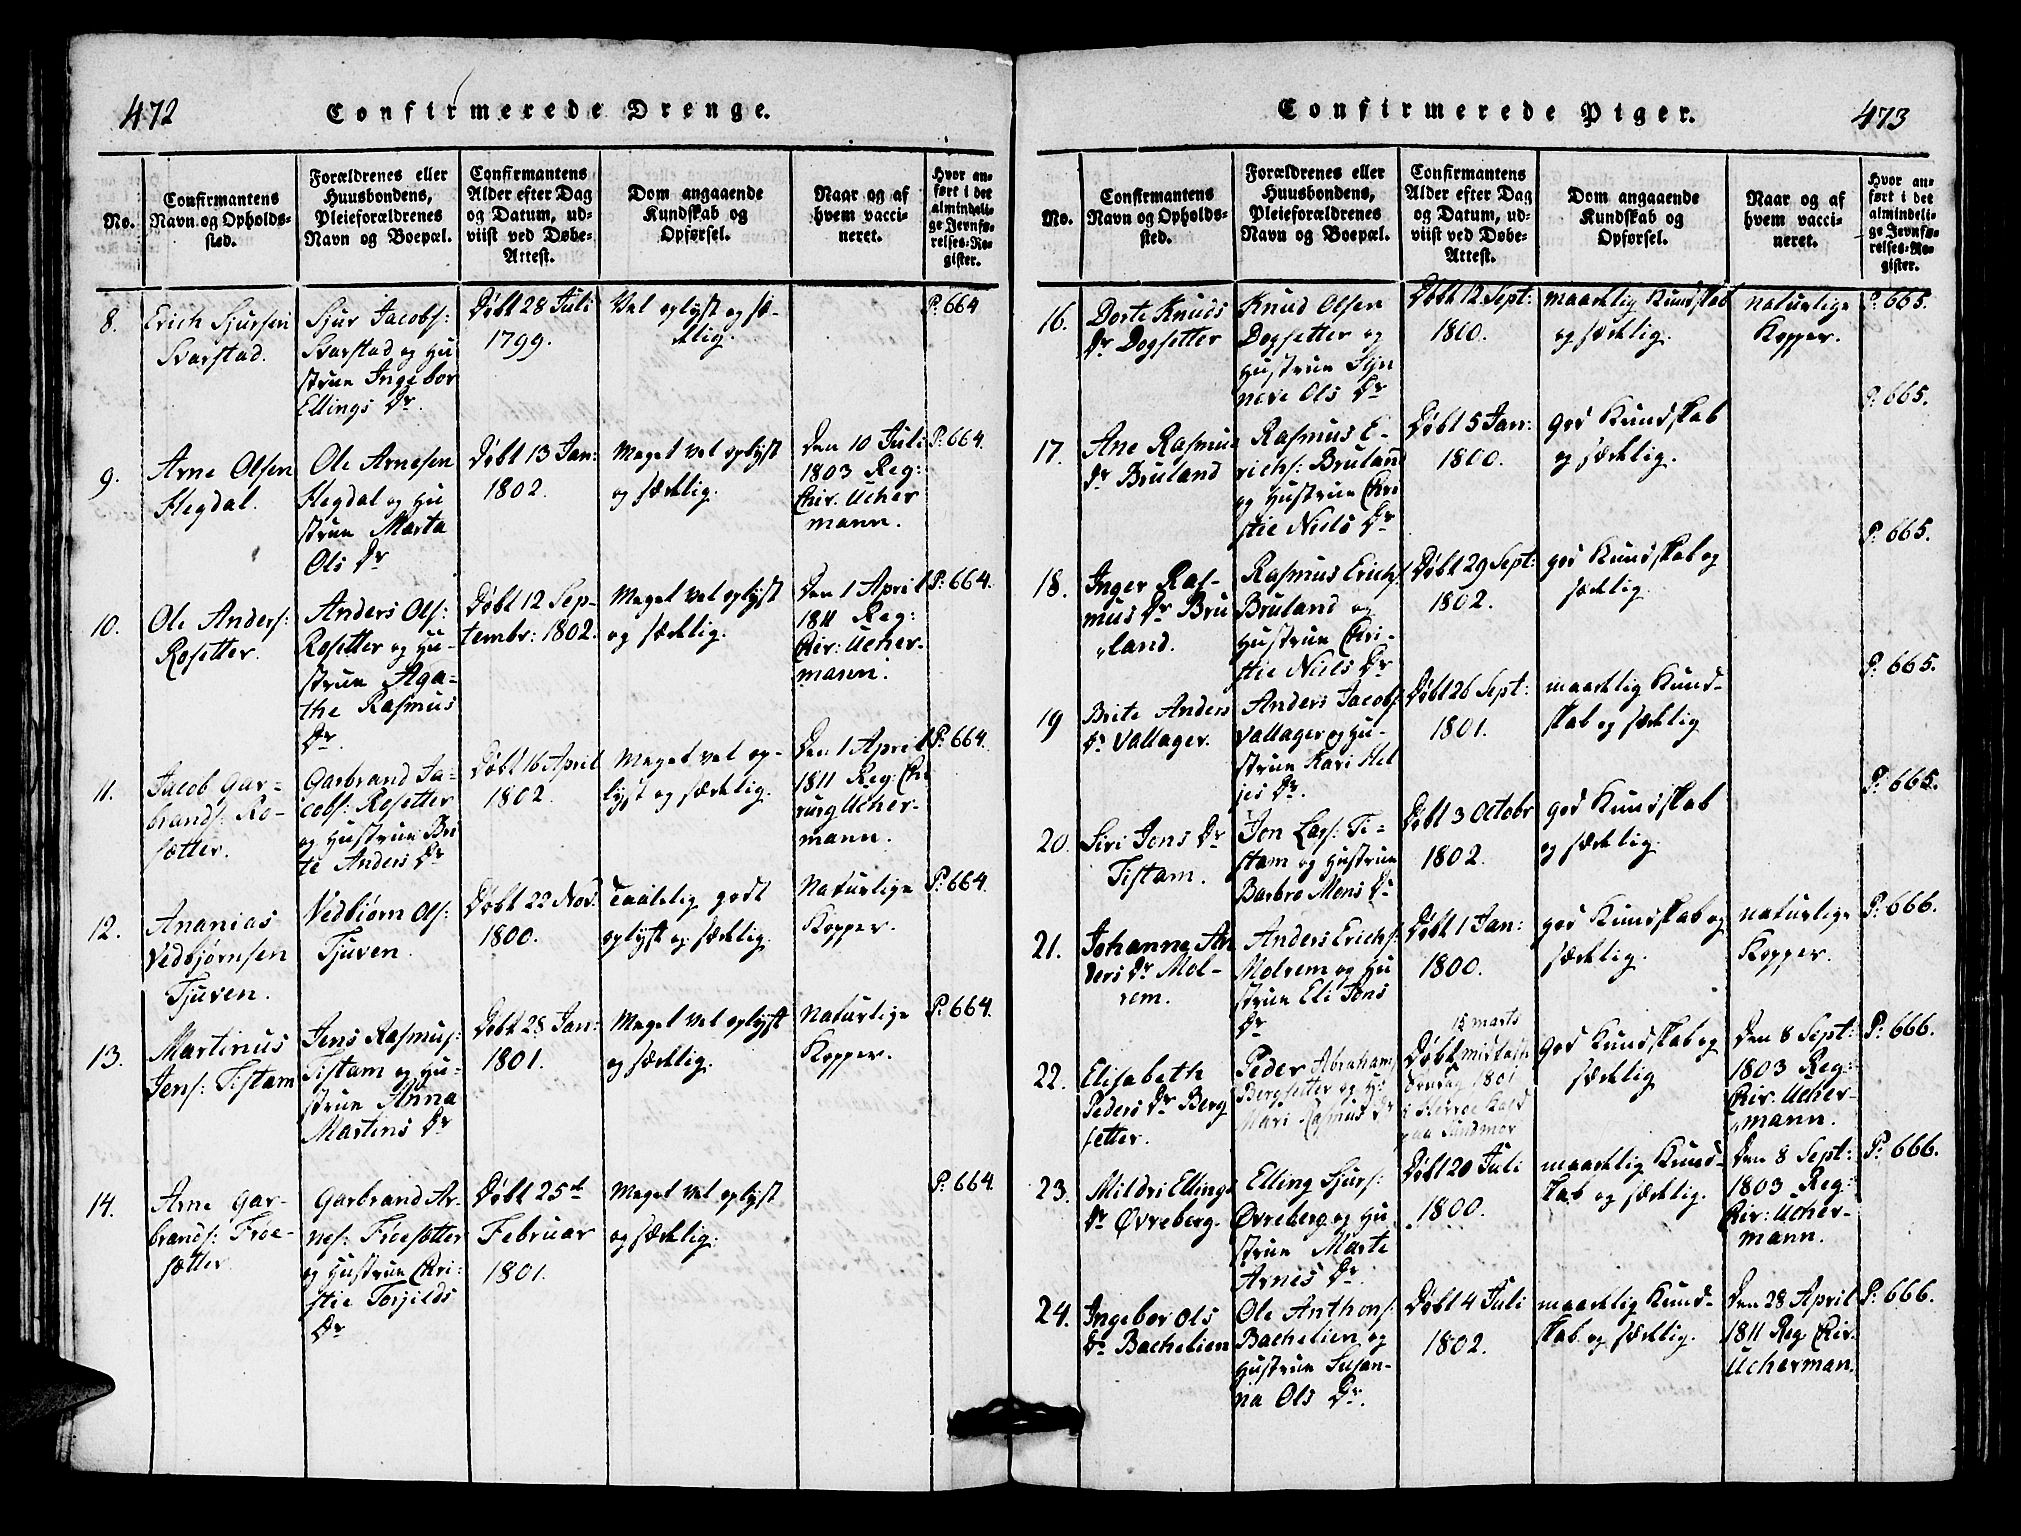 472
Confirmerede Drenge.
No.
Confirmantens
Navn og Opholds-
sted.
Forældrenes eller
Huusbondens,
Pleieforældrenes
Navn og Boepæl.
Confirmantens
Alder efter Dag
og Datum, ud-
viist ved Døbe-
Attest.
Dom angaaende
Kundskab og
Opførsel.
Naar og af
hvem vacci-
neret.
Hvor an-
ført i det
almindeli-
ge Jevnfø-
relses-Re-
gister.
8.
Erich Sjursen
Svarstad.
Sjur Jacobs:
Svarstad og Hu
strue Ingebor
Ellings Dr.
Døbt 28 Juli
1799.
Vel oplyst og sæ-
delig.
P: 664
9.
Arne Olsen
Hegdal.
Ole Arnesen
Hegdal og Hu
strue Marta
Ols Dr
Døbt 13 Jan:
1802.
Meget vel oplyst
og sædelig.
Den 10 Juli
1803 Reg:
Chir. Ucher
mann.
P: 664.
10.
Ole Anders:
Rosetter.
Anders Ols:
Rosetter og Hu-
strue Aga-
the Rasmus
Dr.
Døbt 12 Sep-
tembr: 1802.
Meget vel oplyst
og sædelig.
Den 1 April
1811 Reg:
Chir: Ucher-
mann.
P: 664.
11.
Jacob Gar-
brands: Ro-
sætter.
Garbrand Ja-
cobs: Rosetter
og Hustrue Bri
te Anders Dr
Døbt 16 April
1802.
Meget vel op-
lyst og sædelig.
Den 1 April
1811 Reg: Chi
rurg Ucher-
mann.
P: 664.
12.
Ananias
Vedbjørnsen
Tjuven.
Vedbiørn Ols:
Tjuven.
Døbt 22 Nov.
1800.
Taalelig godt
oplyst og sædelig.
Naturlige
Kopper.
P: 664.
13.
Martinus
Jens: Tistam
Jens Rasmus:
Tistam og Hu-
strue Anna
Martins Dr
Døbt 28 Jan:
1801.
Meget vel oplyst
og sædelig.
Naturlige
Kopper.
P: 664.
14.
Arne Gar-
brands: Frøe-
sætter.
Garbrand Ar-
nes: Frøesætter
og Hustrue Chri-
stie Torjilds
Dr
Døbt 25de
Februar
1801.
Meget vel oplyst
og sædelig:
P: 664.
Confirmerede Piger.
473
No.
Confirmantens
Navn og Opholds-
sted.
Forældrenes eller
Huusbondens,
Pleieforældrenes
Navn og Boepæl.
Confirmantens
Alder efter Dag
og Datum, ud-
viist ved Døbe-
Attest.
Dom angaaende
Kundskab og
Opførsel.
Naar og af
hvem vacci-
neret.
Hvor an-
ført i det
almindeli-
ge Jevnfø-
relses-Re-
gister.
16.
Dorte Knuds
Dr Dogsetter
Knud Olsen
Dogsetter og
Hustrue Syn
neve Ols Dr
Døbt 12 Sept:
1800.
maadelig Kundskab
og sædelig.
naturlige
Kopper.
P: 665.
17.
Ane Rasmus
Dr Bruland
Rasmus E-
richs: Bruland
og Hustrue Chri
stie Niels Dr
Døbt 5 Jan:
1800.
god Kundskab
og sædelig.
P: 665.
18.
Inger Ras-
mus Dr Bru
land.
Rasmus Erichs:
Bruland og
Hustrue Chri-
stie Niels Dr
Døbt 29 Sept:
1802.
god Kundskab og
sædelig.
P: 665.
19
Brite Anders
Dr Vallager.
Anders Jacobs
Vallager og Hu-
strue Kari Hel
jes Dr.
Døbt 26 Sept:
1801.
maadelig Kund-
skab og sædelig
P: 665.
20.
Siri Jons Dr
Tistam.
Jon Lars: Ti-
stam og Hustrue
Barbro Mons Dr
Døbt 3 Octobr
1802.
god Kundskab
og sædelig.
P: 665.
21.
Johanna An
ders Dr Mol-
rem.
Anders Erichs:
Molrem og Hu
strue Eli Jons
Dr
Døbt 1 Jan:
1800.
god Kundskab og
sædelig.
naturlige
Kopper.
P: 666.
22.
Elisabeth
Peders Dr Berg
setter.
Peder Abraham
Bergsetter og H:
Mari Rasmus Dr
15 marts
Døbt midfaste
Søndag 1801
i Herrøe Kald
paa Sundmør
god Kundskab og
sædelig
Den 8 Sept:
1803 Reg:
Chir. Ucher-
mann.
P: 666.
23.
Mildri Ellings
Dr Øvreberg.
Elling Sjurs:
Øvreberg og Hu
strue Marte
Arnes Dr
Døbt 20 Juli
1800.
maadelig Kund-
skab og sædelig.
Den 8 Sept:
1803 Reg:
Chir: Ucher-
mann.
P: 666.
24.
Ingebor Ols
Dr Bachelien
Ole Anthons:
Bachelien og
Hustrue Susan-
na Ols Dr.
Døbt 4 Juli
1802.
maadelig Kund-
skab og sædelig.
Den 28 April
1811 Reg Chir.
Ucherman.
P: 666.